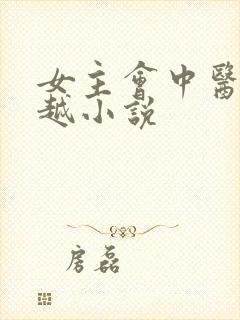 女主會中醫
越小説
房磊